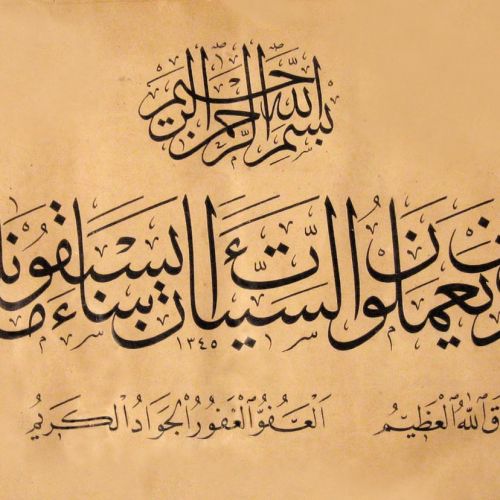 بِسْمِ اللَّهِ الرَّحْمٰنِ الرَّحِيمِ
يَعْمَلُونَ السَّيِّئَاتِ أَن يَسْبِقُونَا سَاءَ مَا
١٣٤٥
اللّٰهُ الْعَظِيْمُ الْعَفُوُّ الْغَفُورُ الْجَوَادُ الْكَرِيمُ